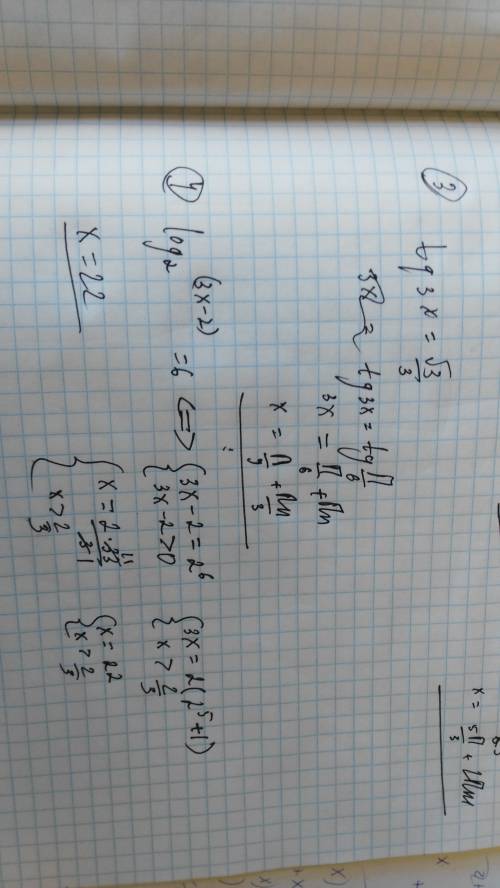 x = 5π/3 + 2πn
③ tg 3x = √3/3
tg 3x = tg π/6
3x = π/6 + πn
x = π/9 + πn/3
④ log₂ (3x-2) = 6 <=> { 3x-2 = 2⁶ { 3x = 2(2⁵+1)
{ 3x-2>0 { x > 2/3
{ x = 2·33/3 { x = 22
{ x > 2/3 { x > 2/3
x = 22